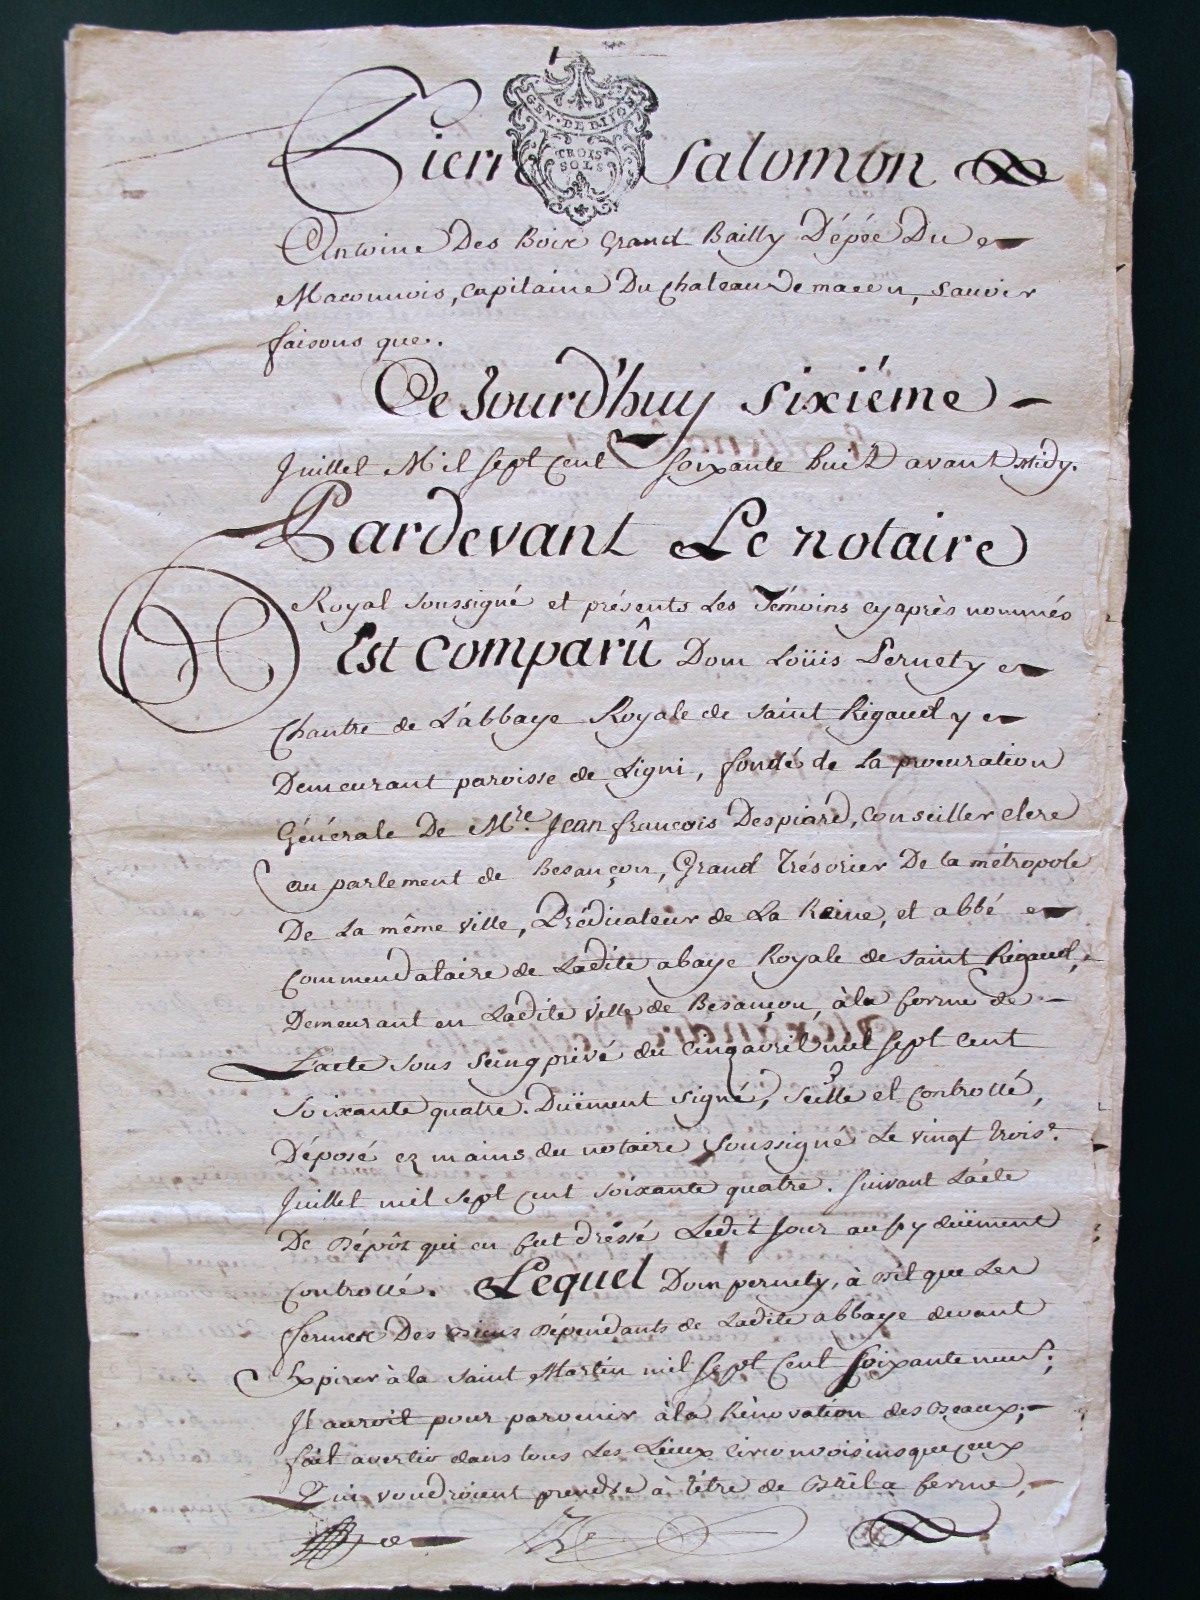 GEN. DE DIJON
TROIS
SOLS
Pierre Salomon
Antoine Des Boix Grand Bailly D'épée Du
Maconnois, Capitaine Du Chateau de macon, Sauoir
faisons que.
Ce Jourd'huy Sixiéme
Juillet Mil Sept Cent Soixante huit avant Midy.
Pardevant Le Notaire
Royal Soussigné et présents Les Témoins cy après nommés
Est Comparû Dom Loüis Pernety
Chantre de L'abbaye Royale de Saint Rigaud y
Demeurant paroisse de Ligni, fondé de La procuration
Générale De Mre. Jean françois Despiard, Conseiller Clerc
au parlement de Besançon, Grand Trésorier De la métropole
De La même ville, Prédicateur de La Reine, et abbé
Commendataire de Ladite abaye Royale de Saint Rigaud,
Demeurant en Ladite Ville de Besançon, à la forme de
L'acte sous Seing privé du Cinq avril mil Sept Cent
Soixante quatre. Düement Signé, Scellé et Controllé,
Déposé ez mains du notaire Soussigné Le vingt trois.
Juillet mil Sept Cent Soixante quatre. Suivant L'acte
De Dépôt qui en fut dréssé Ledit Jour aussy düement
Controllé. Lequel Dom pernety, à Dit que Les
fermes Des Biens Dépendants de Ladite abbaye devant
Expirer à la Saint Martin mil Sept Cent Soixante neuf;
Il auroit pour parvenir à la Rénovation des Beaux,
fait avertir dans tous Les Lieux Circonvoisins que ceux
Qui voudroient prendre à titre de Bail a ferme,